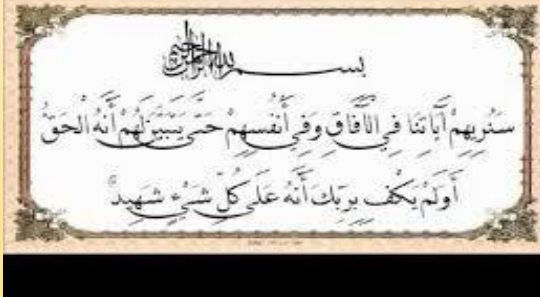 بسم الله الرحمن الرحيم
سَنُرِيهِمْ آيَاتِنَا فِي الْآفَاقِ وَفِي أَنْفُسِهِمْ حَتَّى يَتَبَيَّنَ لَهُمْ أَنَّهُ الْحَقُّ
أَوَلَمْ يَكْفِ بِرَبِّكَ أَنَّهُ عَلَى كُلِّ شَيْءٍ شَهِيدٌ